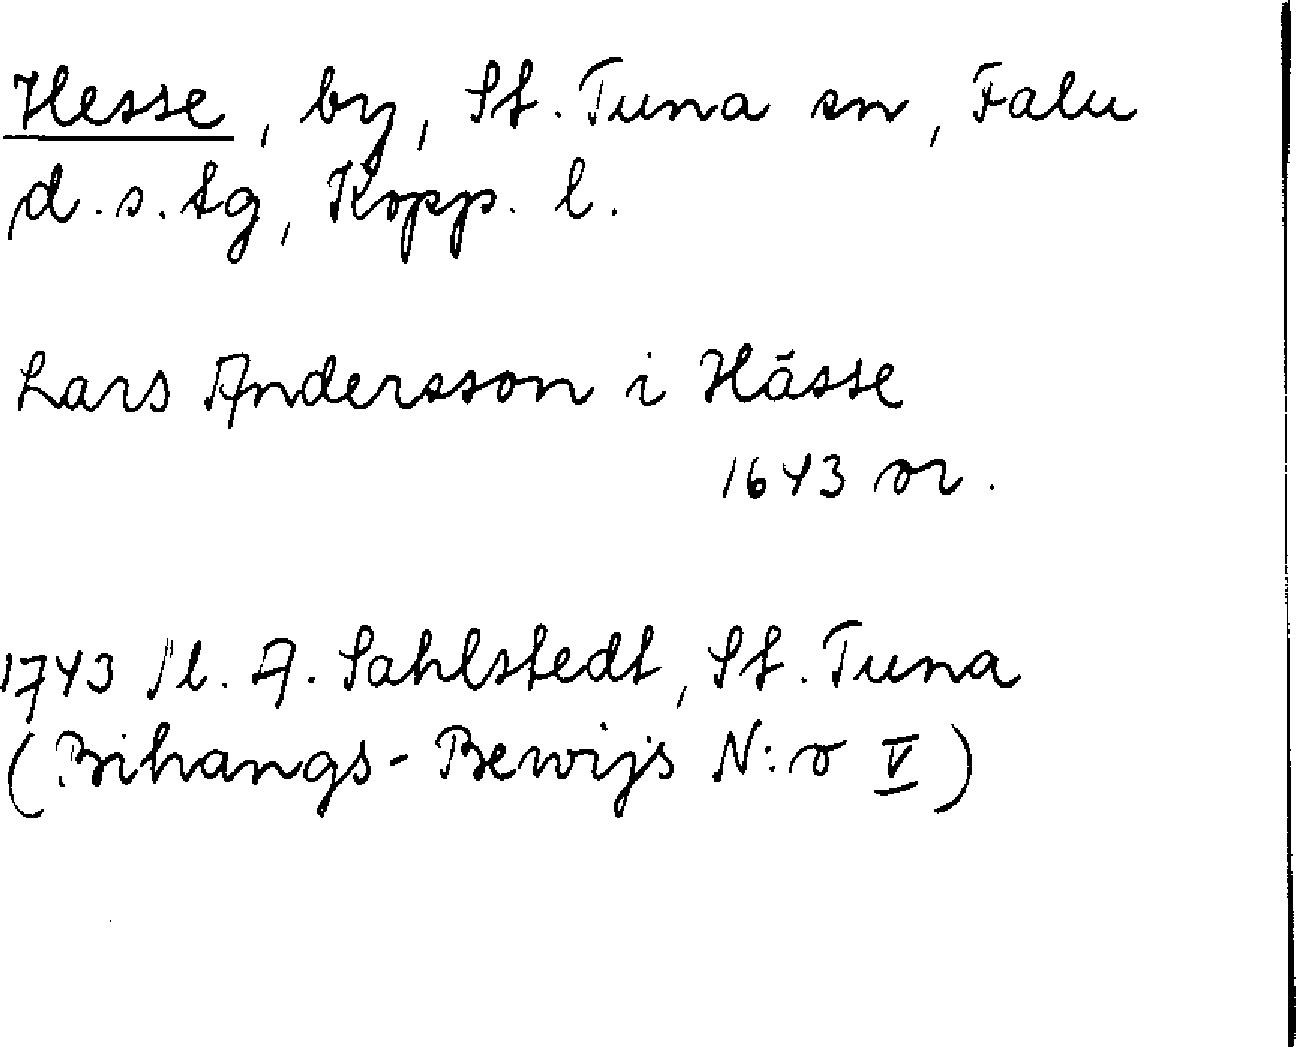 Hesse, by, St. Tuna sn, Falu
d.s. tg, Kopp. l.
Lars Andersson i Hässe
1643 or.
1743 A. Sahlstedt, St. Tuna
(Bihangs-Bewijs N:o V)